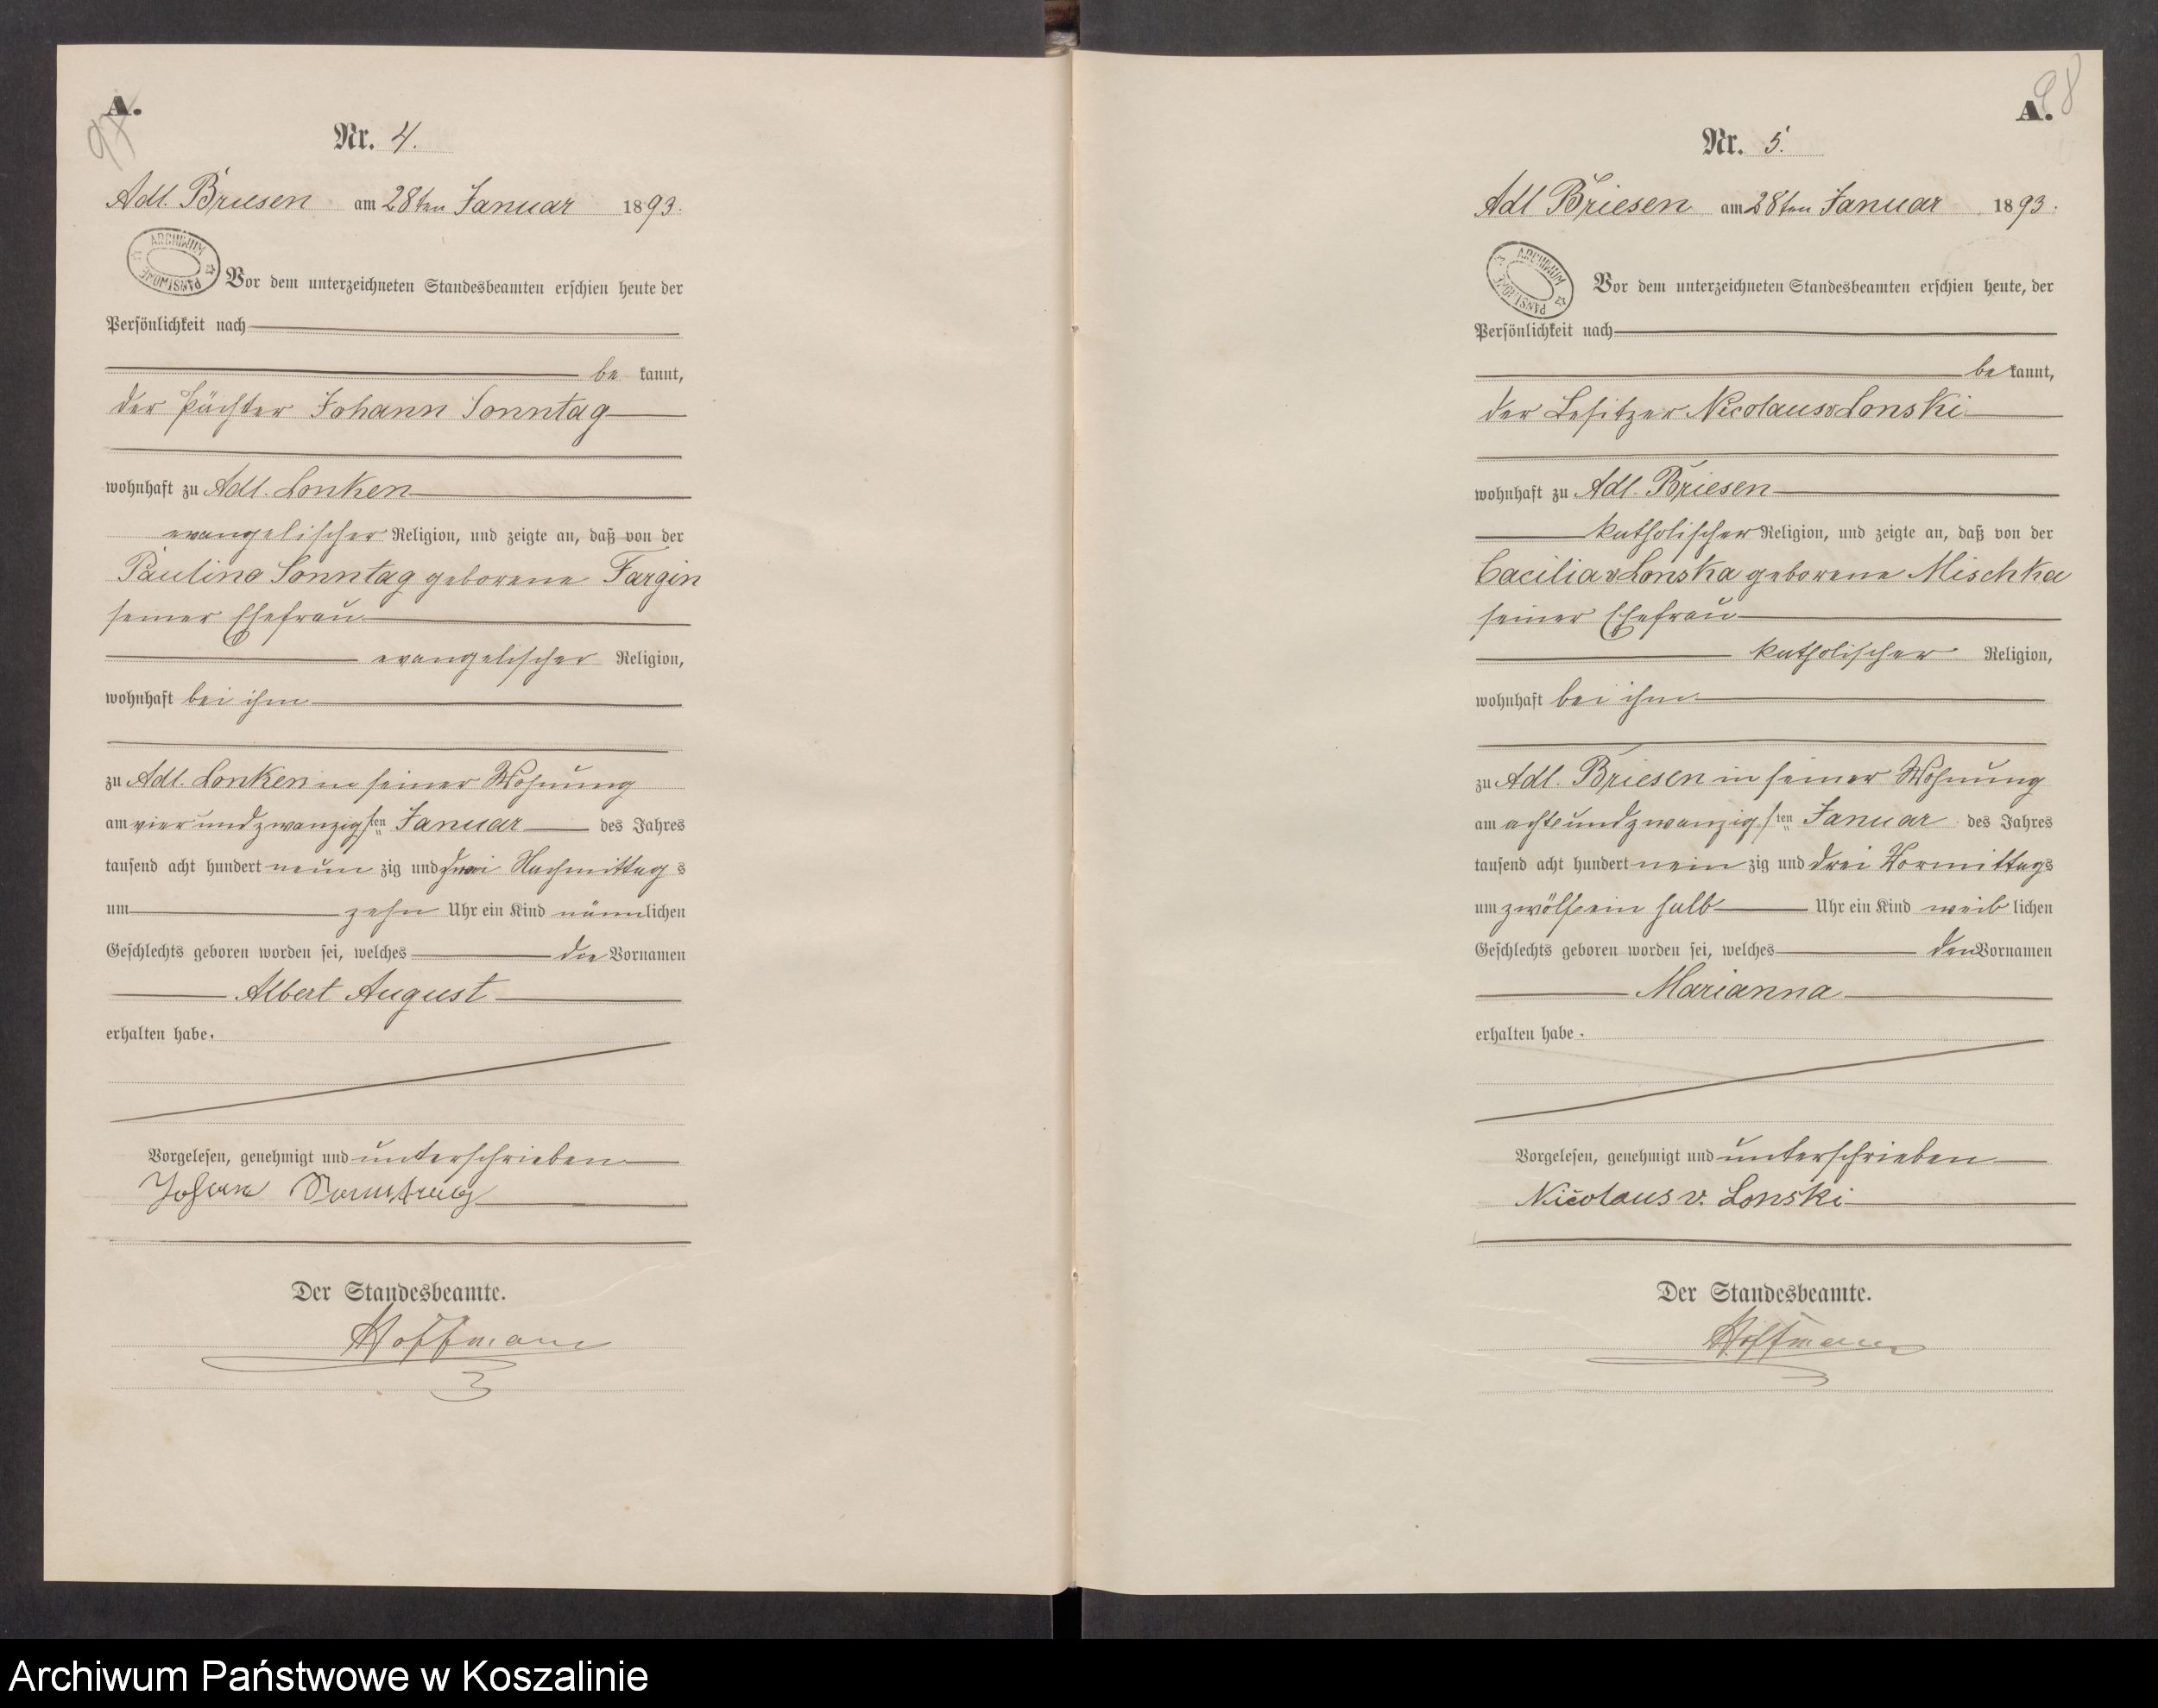 A.
97
Nr. 4.
Adl. Briesen am 28ten Januar 1893.
ARCHIWUM PAŃSTWOWE
Vor dem unterzeichneten Standesbeamten erschien heute der
Persönlichkeit nach
be kannt,
der Pächter Johann Sonntag
wohnhaft zu Adl. Lonken
evangelischer Religion, und zeigte an, daß von der
Pauline Sonntag geborene Fargin
seiner Ehefrau
evangelischer Religion,
wohnhaft bei ihm
zu Adl. Lonken in seiner Wohnung
am vier und zwanzigsten Januar des Jahres
tausend acht hundert neun zig und drei Nachmittag s
um zehn Uhr ein Kind männlichen
Geschlechts geboren worden sei, welches die Vornamen
Albert August
erhalten habe.
Vorgelesen, genehmigt und unterschrieben
Johann Sonntag
Der Standesbeamte.
Hoffmann
A.
98
Nr. 5.
Adl Briesen am 28ten Januar 1893.
ARCHIWUM PAŃSTWOWE
Vor dem unterzeichneten Standesbeamten erschien heute, der
Persönlichkeit nach
be kannt,
der Besitzer Nicolaus v Lonski
wohnhaft zu Adl. Briesen
katholischer Religion, und zeigte an, daß von der
Cacilia v Lonska geborene Mischka
seiner Ehefrau
katholischer Religion,
wohnhaft bei ihm
zu Adl. Briesen in seiner Wohnung
am acht und zwanzigsten Januar des Jahres
tausend acht hundert nein zig und drei Vormittags
um zwölfein halb Uhr ein Kind weib lichen
Geschlechts geboren worden sei, welches den Vornamen
Marianna
erhalten habe.
Vorgelesen, genehmigt und unterschrieben
Nicolaus v. Lonski
Der Standesbeamte.
Hoffmann
Archiwum Państwowe w Koszalinie